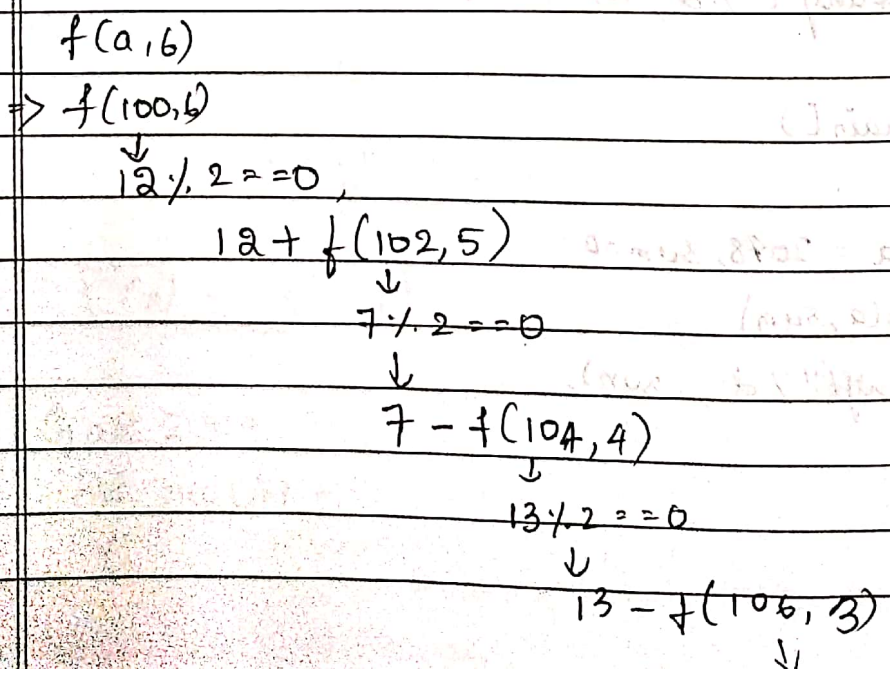 f(a,6)
=> f(100,6)
↓
12 % 2 == 0,
12 + f(102,5)
↓
7 % 2 == 0
↓
7 - f(104,4)
↓
13 % 2 == 0
↓
13 - f(106, 3)
↓